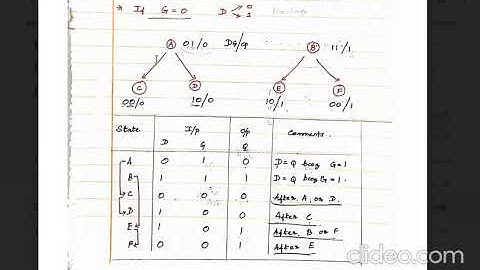 * If G=0 D 0
1
A 01/0 DG/op B 11/1
C D E F
00/0 10/0 10/1 00/1
State I/p o/p Comments
D G Q
A 0 1 0 D=Q bcoz G=1
B 1 1 1 D=Q bcoz G=1.
C 0 0 0 After A or D.
D 1 0 0 After C
E 1 0 1 After B or F
F 0 0 1 After E
clideo.com